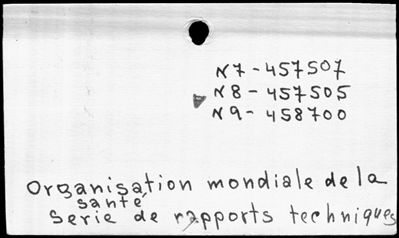 N7-457507
N8-457505
N9-458700
Organisation mondiale de la
santé
Serie de rapports techniques